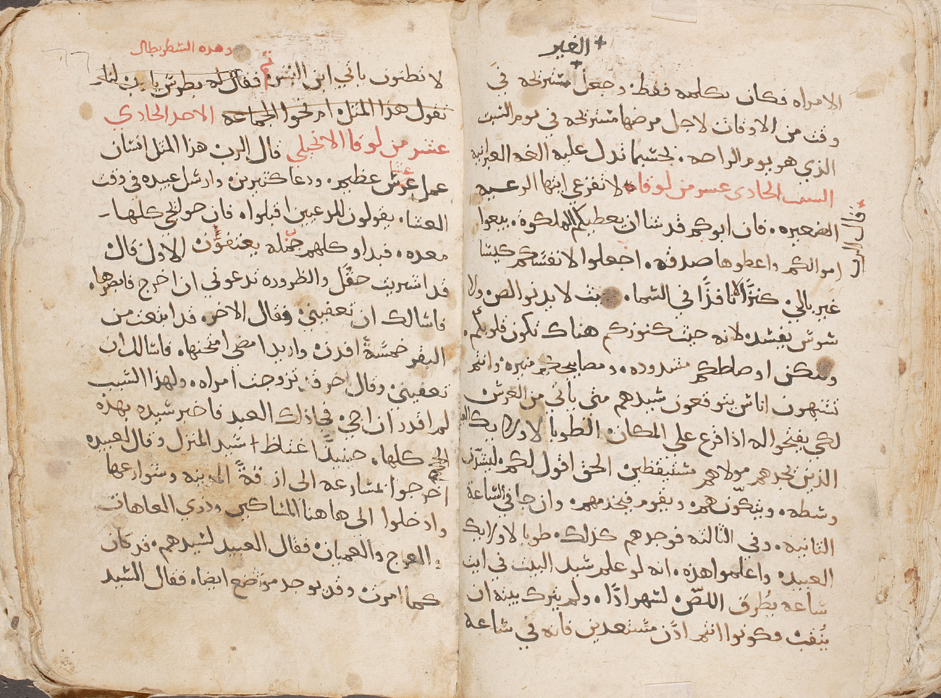 + الغير
الامراه فكان يكلمه فقط. وجعل مسترخه في
وقت من الاوقات لاجل مرضها مسترخه في يوم السبت
الذي هو يوم الراحه. بحسبما تدل عليه اللغه العبرانيه
السبت الحادي عشر من لوقا لا تفزعي ايتها الرعيه
قال الرب
الصغيره. فان ابوكم قد شا ان يعطيكم الملكوة. بيعوا
اموالكم واعطوها صدقه. اجعلوا لانفسكم كيسا
غير بالي. كنزًا في السما. حيث لا يدنو اللص ولا
سوس يفسد لانه حيث كنوزكم هناك تكون قلوبكم.
ولتكن اوصاطكم مشدوده. ومصابيحكم منيره وانتم
تشبهون اناس يتوقعون سيدهم متى ياتي من العرس
لكي يفتحوا له اذا قرع على المكان الطوبا لاولايك
الذين يجدهم مولاهم مستيقظين الحق اقول لكم ليشدن
وسطه. ويتكوهم. ويقوم فيخدمهم. وان جا في الساعة
الثانيه. وفي الثالثه فوجدهم كذلك. طوبا لاولايك
العبيد. واعلموا هذه. انه لو علم سيد البيت في ايت
ساعه يطرق اللص لسهر اذًا. ولم يترك بيته ان
ينقب وكونوا انتم اذن مستعدين فانه في ساعة
وهده
لا تظنون باني ابن البشر ثم فقال له بطرس يارب لنا
تقول هذا المثل ام نحوا الجماعه الاحد الحادي
عشر من لوقا الانجيلي قال الرب هذا المثل انسان
عمل عرس عظيم. ودعا كثيرين. وارسل عبيده في وقت
العشا. يقولون للمدعيين اقبلوا. فان حوايجي كلها
معده. فبداو كلهم جمله يعتفون الاول قال
قد اشتريت حقل والظروره تدعوني ان اخرج فابصرها.
فاسالك ان تعفيني. وقال الاخر. قد ابتعت من
البقر خمسة افدن واريد امضي امتحنها. فاسالك ان
تعفيني. وقال اخر قد تزوجت امراه. ولهذا السبب
لم اقدر ان اجي. فجا ذلك العبد فاخبر سيده بهذه
كلها. حينيدًا اغتاظ سيد المنزل وقال لعبيده
اخرجوا مسارعه الى ازقة المدينه وشوارعها
وادخلوا الى هاهنا المساكين وذوي العاهات
والعرج والعميان. فقال العبيد لسيدهم. قد كان
كما امرت وقد يوجد مواضع ايضاء. فقال السيد